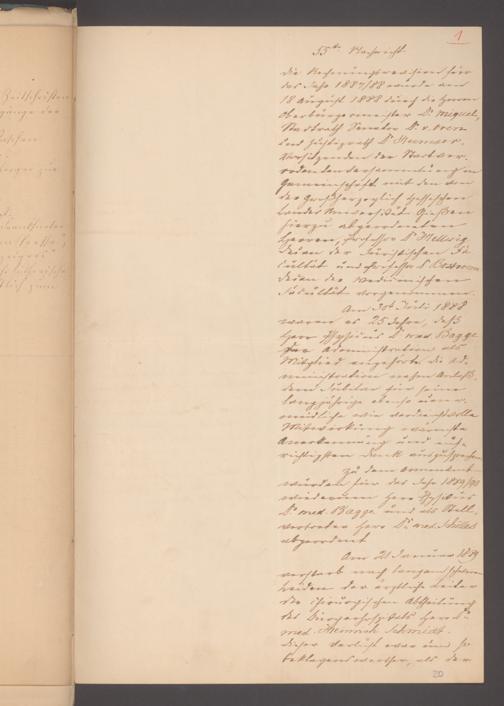 1
55te Nachricht
Die Rechnungsrevision für
das Jahr 1887/88 wurde am
18 August 1888 durch die Herren
Oberbürgermeister Dr. Miquel,
Stadtrath Senator Dr. v. Oven
und Justizrath Dr Humser,
Vorsitzenden der Stadtver-
ordneten Versammlung in
Gemeinschaft mit den von
der Großherzoglich Hessischen
Landes Universität Gießen
hierzu abgeordneten
Herren, Professor Dr Hellwig
Dekan der Juristischen Fa-
cultät und Professor Dr Bostroem
Dekan der Medicinischen
Facultät vorgenommen.
Am 30t Juli 1888
waren es 25 Jahre, daß
Herr Physicus Dr med. Bagge
der Administration als
Mitglied angehörte die Ad-
ministration nahm Anlaß,
dem Jubilar für seine
langjährige ebenso uner-
müdliche wie verdienstvolle
Mitwirkung wärmste
Anerkennung und auf-
richtigsten Dank auszusprechen
Zu dem
wurden für das Jahr 1889/90
wiederum Herr Physicus
Dr med. Bagge und als Stell-
vertreter Herr Dr. med.
abgeordnet
Am 21 Januar 1889
verstarb nach langem schweren
Leiden der ärztliche Leiter
der chirurgischen Abtheilung
des Bürgerhospitals Herr Dr.
med. Heinrich Schmidt.
Dieser Verlust war um so
beklagenswerther, als der
20